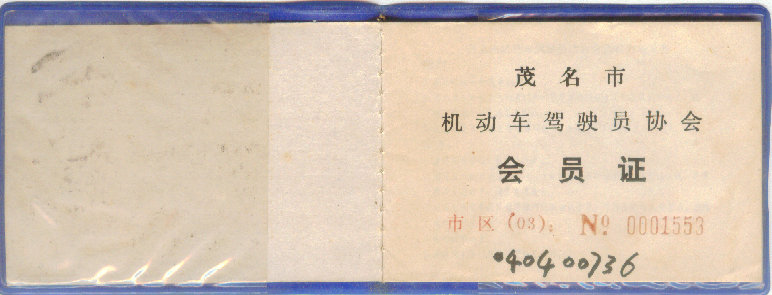 茂名市
机动车驾驶员协会
会员证
市区(03): Nº 0001553
040400736